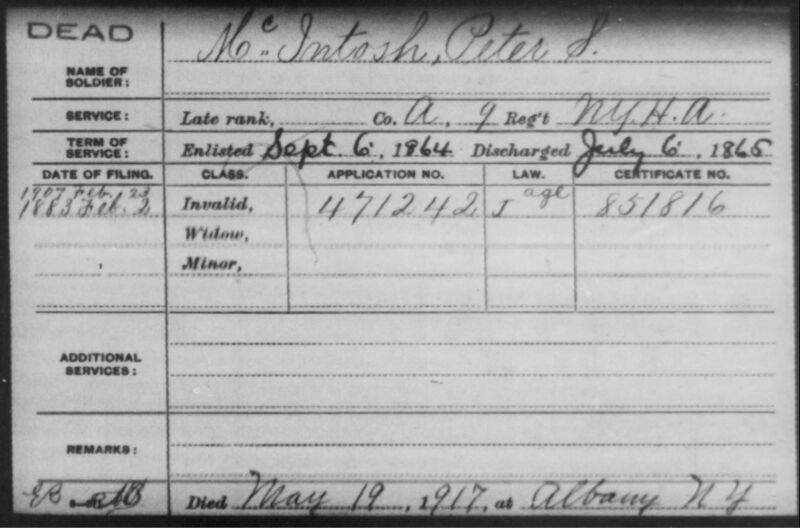 DEAD
NAME OF SOLDIER: McIntosh, Peter S.
SERVICE: Late rank, Co. A, 9 Reg't N.Y.H.A.
TERM OF SERVICE: Enlisted Sept 6, 1864 Discharged July 6, 1865
DATE OF FILING. CLASS. APPLICATION NO. LAW. CERTIFICATE NO.
1907 Feb. 23 age
1883 Feb. 2 Invalid, 471242 J 851816
Widow,
Minor,
ADDITIONAL SERVICES:
REMARKS:
Died May 19, 1917, at Albany NY